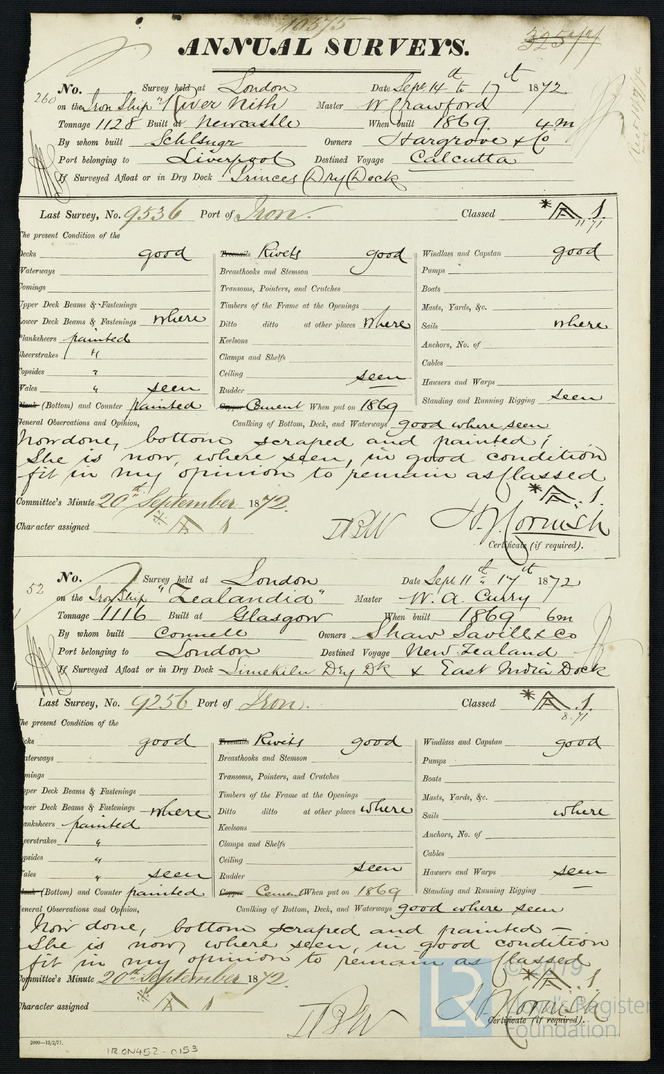 10375
ANNUAL SURVEYS.
325
260 No. Survey held at London Date Sept 14th to 17th 1872
on the Iron Ship "River Nith Master W Crawford
Tonnage 1128 Built at Newcastle When built 1869 4m
By whom built Owners Hargrove & Co
Port belonging to Liverpool Destined Voyage Calcutta
If Surveyed Afloat or in Dry Dock Princes Dry Dock
Last Survey, No. 9536 Port of Iron. Classed * A 1
11.71
The present Condition of the
Decks good Treenails Rivets good Windlass and Capstan good
Waterways Breasthooks and Stemson Pumps
Comings Transoms, Pointers, and Crutches Boats
Upper Deck Beams & Fastenings Timbers of the Frame at the Openings Masts, Yards, &c.
Lower Deck Beams & Fastenings where Ditto ditto at other places where Sails where
Planksheers painted Keelsons Anchors, No. of
Sheerstrakes " Clamps and Shelfs Cables
Topsides " Ceiling seen Hawsers and Warps
Wales " seen Rudder Standing and Running Rigging seen
Plank (Bottom) and Counter painted Copper Cement When put on 1869
General Observations and Opinion, Caulking of Bottom, Deck, and Waterways good where seen
Now done, bottom scraped and painted;
She is now, where seen, in good condition
fit in my opinion to remain as Classed
* A 1.
Committee's Minute 20th September 1872.
Character assigned A 1
H. J. Cornish
Certificate (if required).
52 No. Survey held at London Date Sept. 11 " 17th 1872
on the Iron Ship "Zealandia" Master W. A. Curry
Tonnage 1116 Built at Glasgow When built 1869 6m
By whom built Connell Owners Shaw Savill & Co
Port belonging to London Destined Voyage New Zealand
If Surveyed Afloat or in Dry Dock Limekiln Dry Dk & East India Dock
Last Survey, No. 9256 Port of Iron. Classed * A 1
8.71
The present Condition of the
cks good Treenails Rivets good Windlass and Capstan good
aterways Breasthooks and Stemson Pumps
mings Transoms, Pointers, and Crutches Boats
pper Deck Beams & Fastenings Timbers of the Frame at the Openings Masts, Yards, &c.
wer Deck Beams & Fastenings where Ditto ditto at other places where Sails where
anksheers painted Keelsons Anchors, No. of
eerstrakes " Clamps and Shelfs Cables
psides " Ceiling Hawsers and Warps seen
ales " seen Rudder seen Standing and Running Rigging —
(Bottom) and Counter painted Copper Cement When put on 1869
eneral Observations and Opinion, Caulking of Bottom, Deck, and Waterways good where seen
Now done, bottom scraped and painted —
She is now, where seen, in good condition
fit in my opinion to remain as Classed
* A 1
Committee's Minute 20th September 1872.
Character assigned A 1
H. J. Cornish
Certificate (if required).
2000—13/2/71.
IRON452-0153
LR © 2019
Lloyd's Register
Foundation